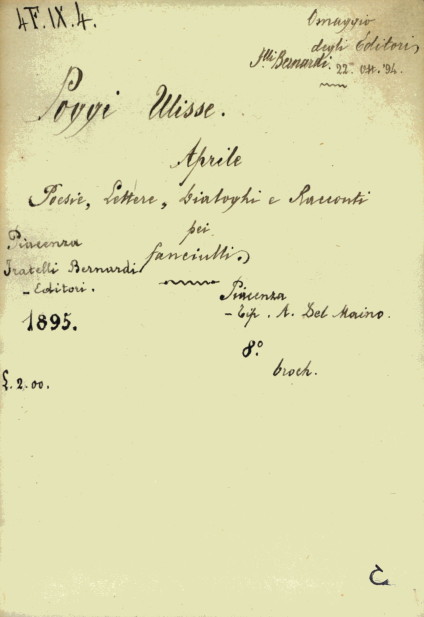 4F.IX.4.
Omaggio
degli Editori
F.lli Bernardi. 22 Ott. '94.
Poggi Ulisse.
Aprile
Poesie, Lettere, Dialoghi e Racconti
pei
fanciulli
Piacenza
Fratelli Bernardi
- Editori.
1895.
Piacenza
- Tip. A. Del Maino.
8.º
broch.
£. 2.00.